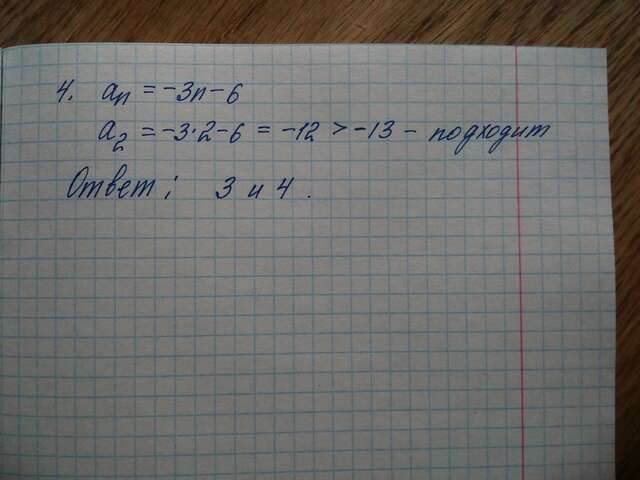 4. aₙ = -3n - 6
a₂ = -3·2 - 6 = -12 > -13 - подходит
Ответ: 3 и 4.